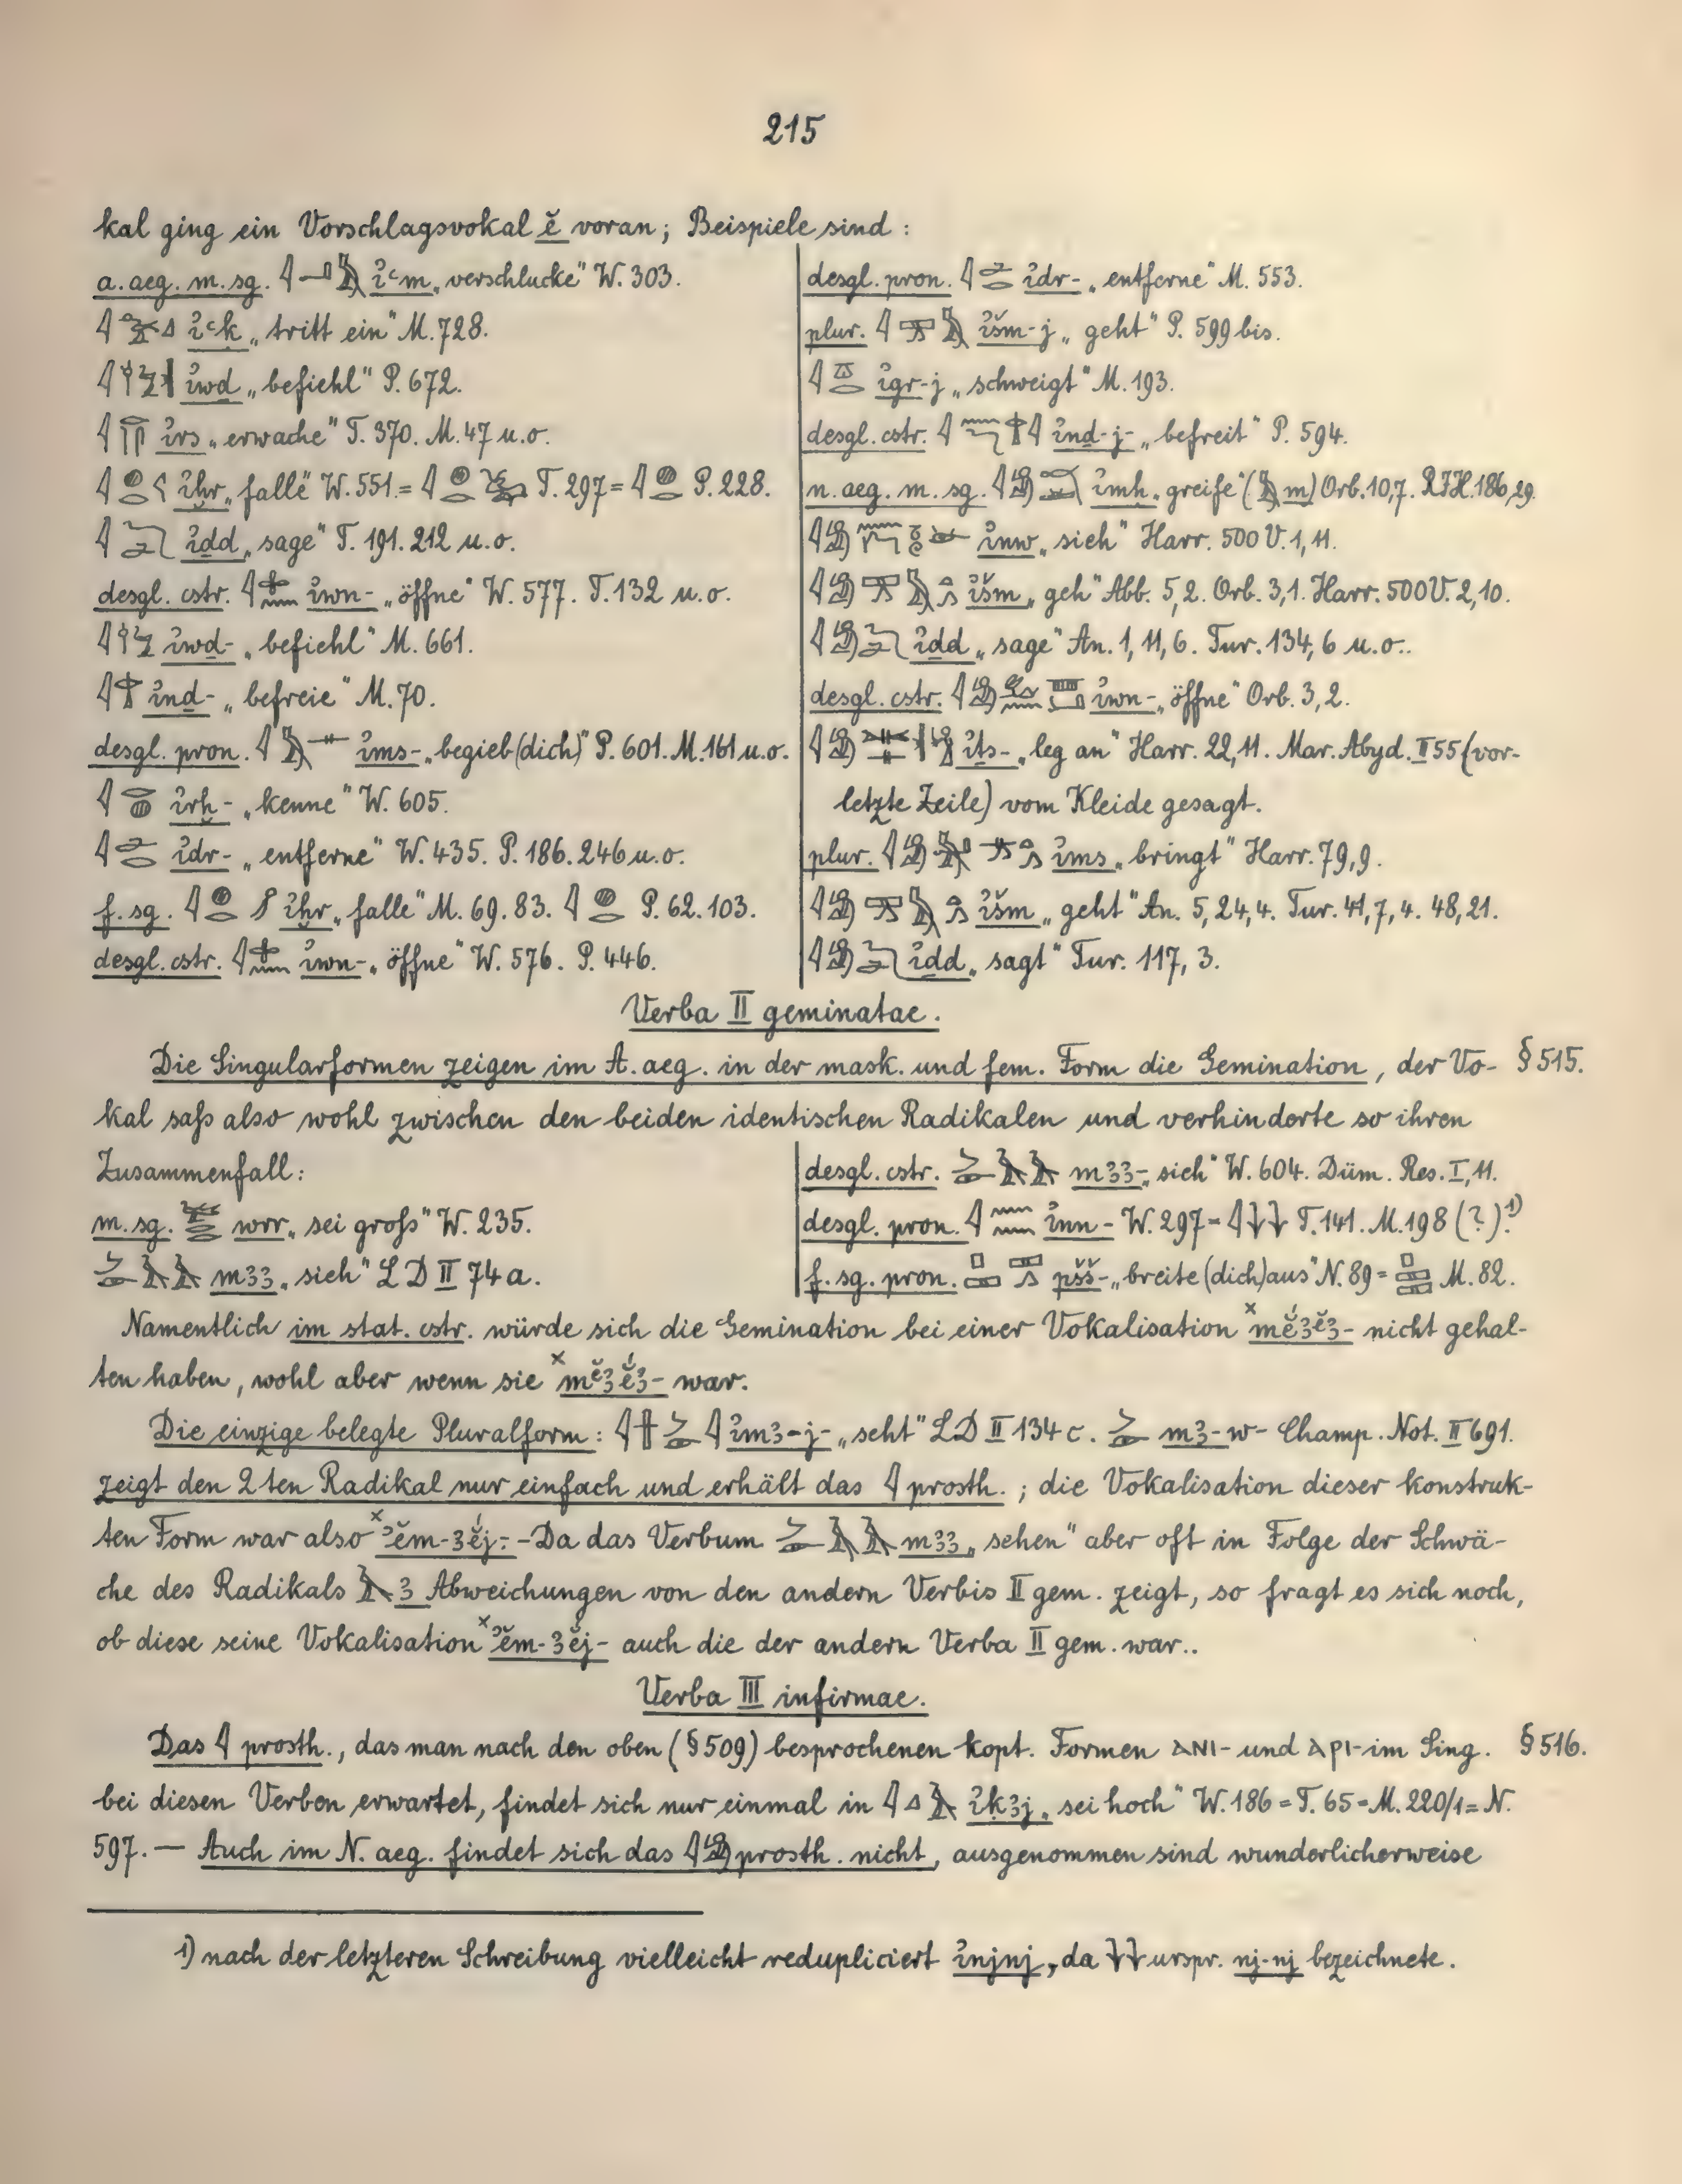 215
kal ging ein Vorschlagsvokal ĕ voran; Beispiele sind:
a. aeg. m. sg. 𓇋𓂝𓅓 i̓ꜥm „verschlucke" W. 303.
i̓ꜥḳ „tritt ein" M. 728.
i̓wḏ „befiehl" P. 672.
i̓rs „erwache" T. 370. M. 47 u. o.
i̓ḫr „falle" W. 551. = T. 297 = P. 228.
𓇋𓆓𓂧 i̓ḏd „sage" T. 191. 212 u. o.
desgl. cstr. i̓wn- „öffne" W. 577. T. 132 u. o.
i̓wḏ- „befiehl" M. 661.
i̓nḏ- „befreie" M. 70.
desgl. pron. 𓇋𓅓𓊃 i̓ms- „begieb (dich)" P. 601. M. 161 u. o.
𓇋𓂋𓐍 i̓rḫ- „kenne" W. 605.
𓇋𓂧𓂋 i̓dr- „entferne" W. 435. P. 186. 246 u. o.
f. sg. i̓ḫr „falle" M. 69. 83. 𓇋𓐍𓂋 P. 62. 103.
desgl. cstr. i̓wn- „öffne" W. 576. P. 446.
desgl. pron. 𓇋𓂧𓂋 i̓dr- „entferne" M. 553.
plur. i̓šm-j „geht" P. 599 bis.
𓇋𓎼𓂋 i̓gr-j „schweigt" M. 193.
desgl. cstr. i̓nḏ-j- „befreit" P. 594.
n. aeg. m. sg. i̓mḥ „greife" (𓅓 m) Orb. 10,7. RJH. 186,29.
i̓nw „sieh" Harr. 500 V. 1, 11.
i̓šm „geh" Abb. 5, 2. Orb. 3, 1. Harr. 500 V. 2, 10.
i̓ḏd „sage" An. 1, 11, 6. Tur. 134, 6 u. o..
desgl. cstr. i̓wn- „öffne" Orb. 3, 2.
i̓ts- „leg an" Harr. 22, 11. Mar. Abyd. II 55 (vor-
letzte Zeile) vom Kleide gesagt.
plur. i̓ms „bringt" Harr. 79, 9.
i̓šm „geht" An. 5, 24, 4. Tur. 41, 7, 4. 48, 21.
i̓ḏd „sagt" Tur. 117, 3.
Verba II geminatae.
Die Singularformen zeigen im A. aeg. in der mask. und fem. Form die Gemination, der Vo- § 515.
kal saß also wohl zwischen den beiden identischen Radikalen und verhinderte so ihren
Zusammenfall:
m. sg. wrr „sei groß" W. 235.
𓌳𓄿𓄿 mꜣꜣ „sieh" LD II 74 a.
desgl. cstr. 𓌳𓄿𓄿 mꜣꜣ- „sieh" W. 604. Düm. Res. I, 11.
desgl. pron. 𓇋𓈖𓈖 i̓nn- W. 297 = 𓇋𓇓𓇓 T. 141. M. 198 (?) 1)
f. sg. pron. pšš- „breite (dich) aus" N. 89 = 𓊪𓈙𓈙 M. 82.
Namentlich im stat. cstr. würde sich die Gemination bei einer Vokalisation ˣmĕ́ꜣĕꜣ- nicht gehal-
ten haben, wohl aber wenn sie ˣmĕꜣĕ́ꜣ- war.
Die einzige belegte Pluralform: i̓mꜣ-j- „seht" LD II 134 c. mꜣ-w- Champ. Not. II 691.
zeigt den 2ten Radikal nur einfach und erhält das 𓇋 prosth.; die Vokalisation dieser konstruk-
ten Form war also ˣʾĕm-ꜣĕ́j-. - Da das Verbum 𓌳𓄿𓄿 mꜣꜣ „sehen" aber oft in Folge der Schwä-
che des Radikals 𓄿 ꜣ Abweichungen von den andern Verbis II gem. zeigt, so fragt es sich noch,
ob diese seine Vokalisation ˣʾĕm-ꜣĕ́j- auch die der andern Verba II gem. war..
Verba III infirmae.
Das 𓇋 prosth., das man nach den oben (§ 509) besprochenen kopt. Formen ⲁⲛⲓ- und ⲁⲣⲓ- im Sing. § 516.
bei diesen Verben erwartet, findet sich nur einmal in 𓇋𓈎𓄿 i̓ḳꜣj „sei hoch" W. 186 = T. 65 = M. 220/1 = N.
597. — Auch im N. aeg. findet sich das prosth. nicht, ausgenommen sind wunderlicherweise
1) nach der letzteren Schreibung vielleicht redupliciert i̓njnj, da 𓇓𓇓 urspr. nj-nj bezeichnete.